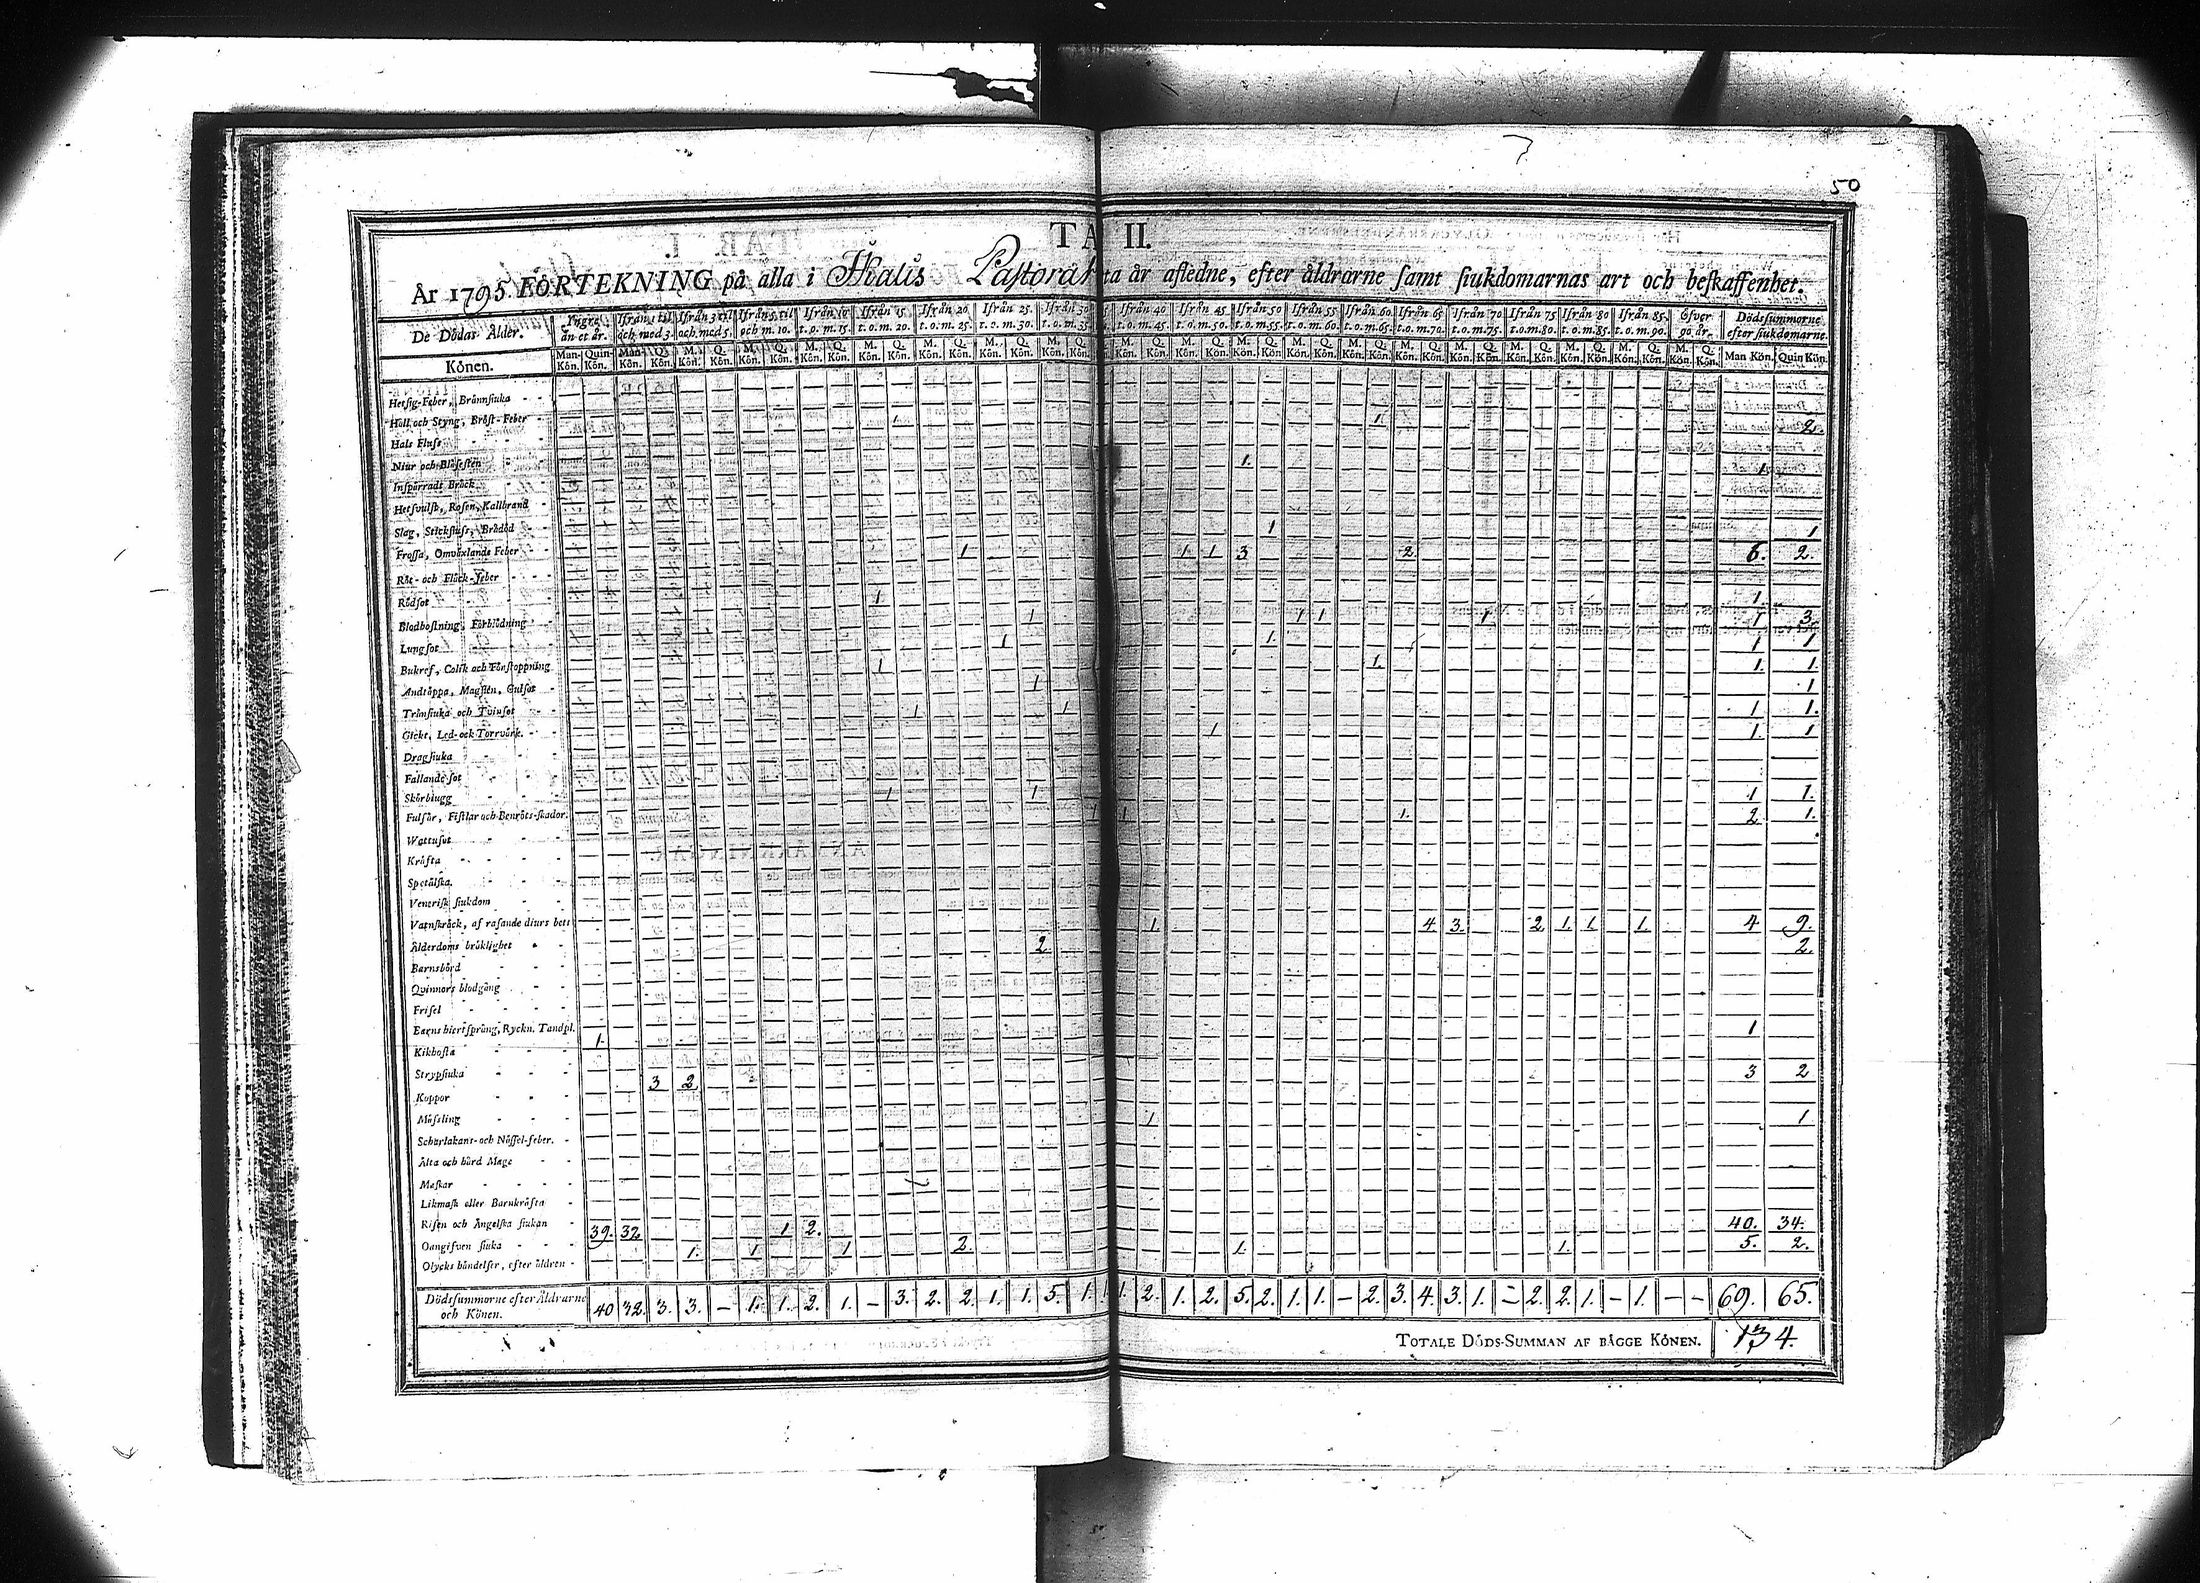 50
TA II.
År 1795 FÖRTEKNING på alla i Pastorat ta år afledne, efter åldrarne samt siukdomarnas art och beskaffenhet.
De Dödas Ålder. Yngre än et år. Ifrån 1 til och med 3. Ifrån 3 til och med 5. Ifrån 5 til och m. 10. Ifrån 10 t.o.m. 15. Ifrån 15 t.o.m. 20. Ifrån 20 t.o.m. 25. Ifrån 25. t.o.m. 30. Ifrån 30 t.o.m. 35. Ifrån 40 t.o.m. 45. Ifrån 45 t.o.m. 50. Ifrån 50 t.o.m. 55. Ifrån 55 t.o.m. 60. Ifrån 60 t.o.m. 65. Ifrån 65 t.o.m. 70. Ifrån 70 t.o.m. 75. Ifrån 75 t.o.m. 80. Ifrån 80 t.o.m. 85. Ifrån 85. t.o.m. 90. Öfver 90 år. Dödssummorne efter siukdomarne.
Könen. Man-Kön. Quin-Kön. Man Kön. Q. Kön. M. Kön. Q. Kön. Man Kön. Quin Kön.
Hetsig-Feber, Brännsiuka
Håll och Styng, Bröst-Feber 1 1. 2.
Hals Fluss
Niur och Blåsesten 1. 1.
Inspärradt Bråck
Hetsvulst, Rosen, Kallbrand
Slag, Stickfluss, Brådöd 1 1
Frossa, Omväxlande Feber 1 1 1 3 2 6. 2.
Röt- och Fläck-feber
Rödsot 1 1.
Blodhostning, Förblödning 1 1 1 1 1 3.
Lungsot 1 1. 1 1
Bukref, Colik och Förstoppning 1 1. 1. 1.
Andtäppa, Magsten, Gulsot 1 1
Trånsiuka och Tvinsot 1 1 1 1.
Gickt, Led- och Torrvärk 1 1. 1
Dragsiuka
Fallande sot
Skörbiugg 1 1 1 1.
Fulsår, Fistlar och Benröts-skador. 1 1 1. 2 1.
Wattusot
Kräfta
Spetälska
Venerisk siukdom
Vatnskräck, af rasande diurs bett 1 4 3. 2 1. 1. 1. 4 9.
Ålderdoms bräklighet 2. 2.
Barnsbörd
Qvinnors blodgång
Frisel
Barns hiertsprång, Ryckn. Tandpl.
Kikhosta 1. 1
Strypsiuka
Koppor 3 2 3 2
Mässling
Scharlakans- och Nässel-feber. 1 1
Älta och hård Mage
Maskar
Likmask eller Barnkräfta
Risen och Ängelska siukan
Oangifven siuka 39. 32 1 2. 40. 34.
Olycks händelser, efter åldren 1. 1. 1 2. 1. 1. 5. 2.
Dödssummorne efter Åldrarne och Könen. 40 32 3. 3. – 1. 1. 2. 1. – 3. 2. 2. 1. 1. 5. 1. 1. 2. 1. 2. 5. 2. 1. 1. – 2. 3. 4. 3. 1. – 2. 2. 1. – 1. – – 69. 65.
TOTALE DÖDS-SUMMAN AF BÅGGE KÖNEN. 134.